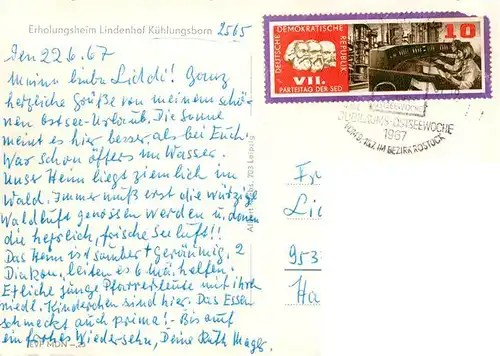 Erholungsheim Lindenhof Kühlungsborn 2565
Den 22.6.67
Meine liebe Liddi! Ganz
herzliche Grüße von meinem schö-
nen Ostsee-Urlaub. Die Sonne
meint es hier besser, als bei Euch.
War schon öfters im Wasser.
Unser Heim liegt ziemlich im
Wald. Immer muß erst die würzige
Waldluft genossen werden u. dann
die herrlich, frische Seeluft!!
Das Heim ist sauber + geräumig. 2
Diakon. leiten es 6 helfen.
Etliche junge Pfarrersleute mit ihren
niedl. Kinderchen sind hier. Das Essen
schmeckt auch prima! - Bis auf
ein frohes Wiedersehn, Deine Ruth
EVP MDN -,20
703 Leipzig
DEUTSCHE DEMOKRATISCHE REPUBLIK
10
VII.
PARTEITAG DER SED
JUBILÄUMS-OSTSEEWOCHE
1967
IM BEZIRK ROSTOCK
Fr
Li
953
Ha